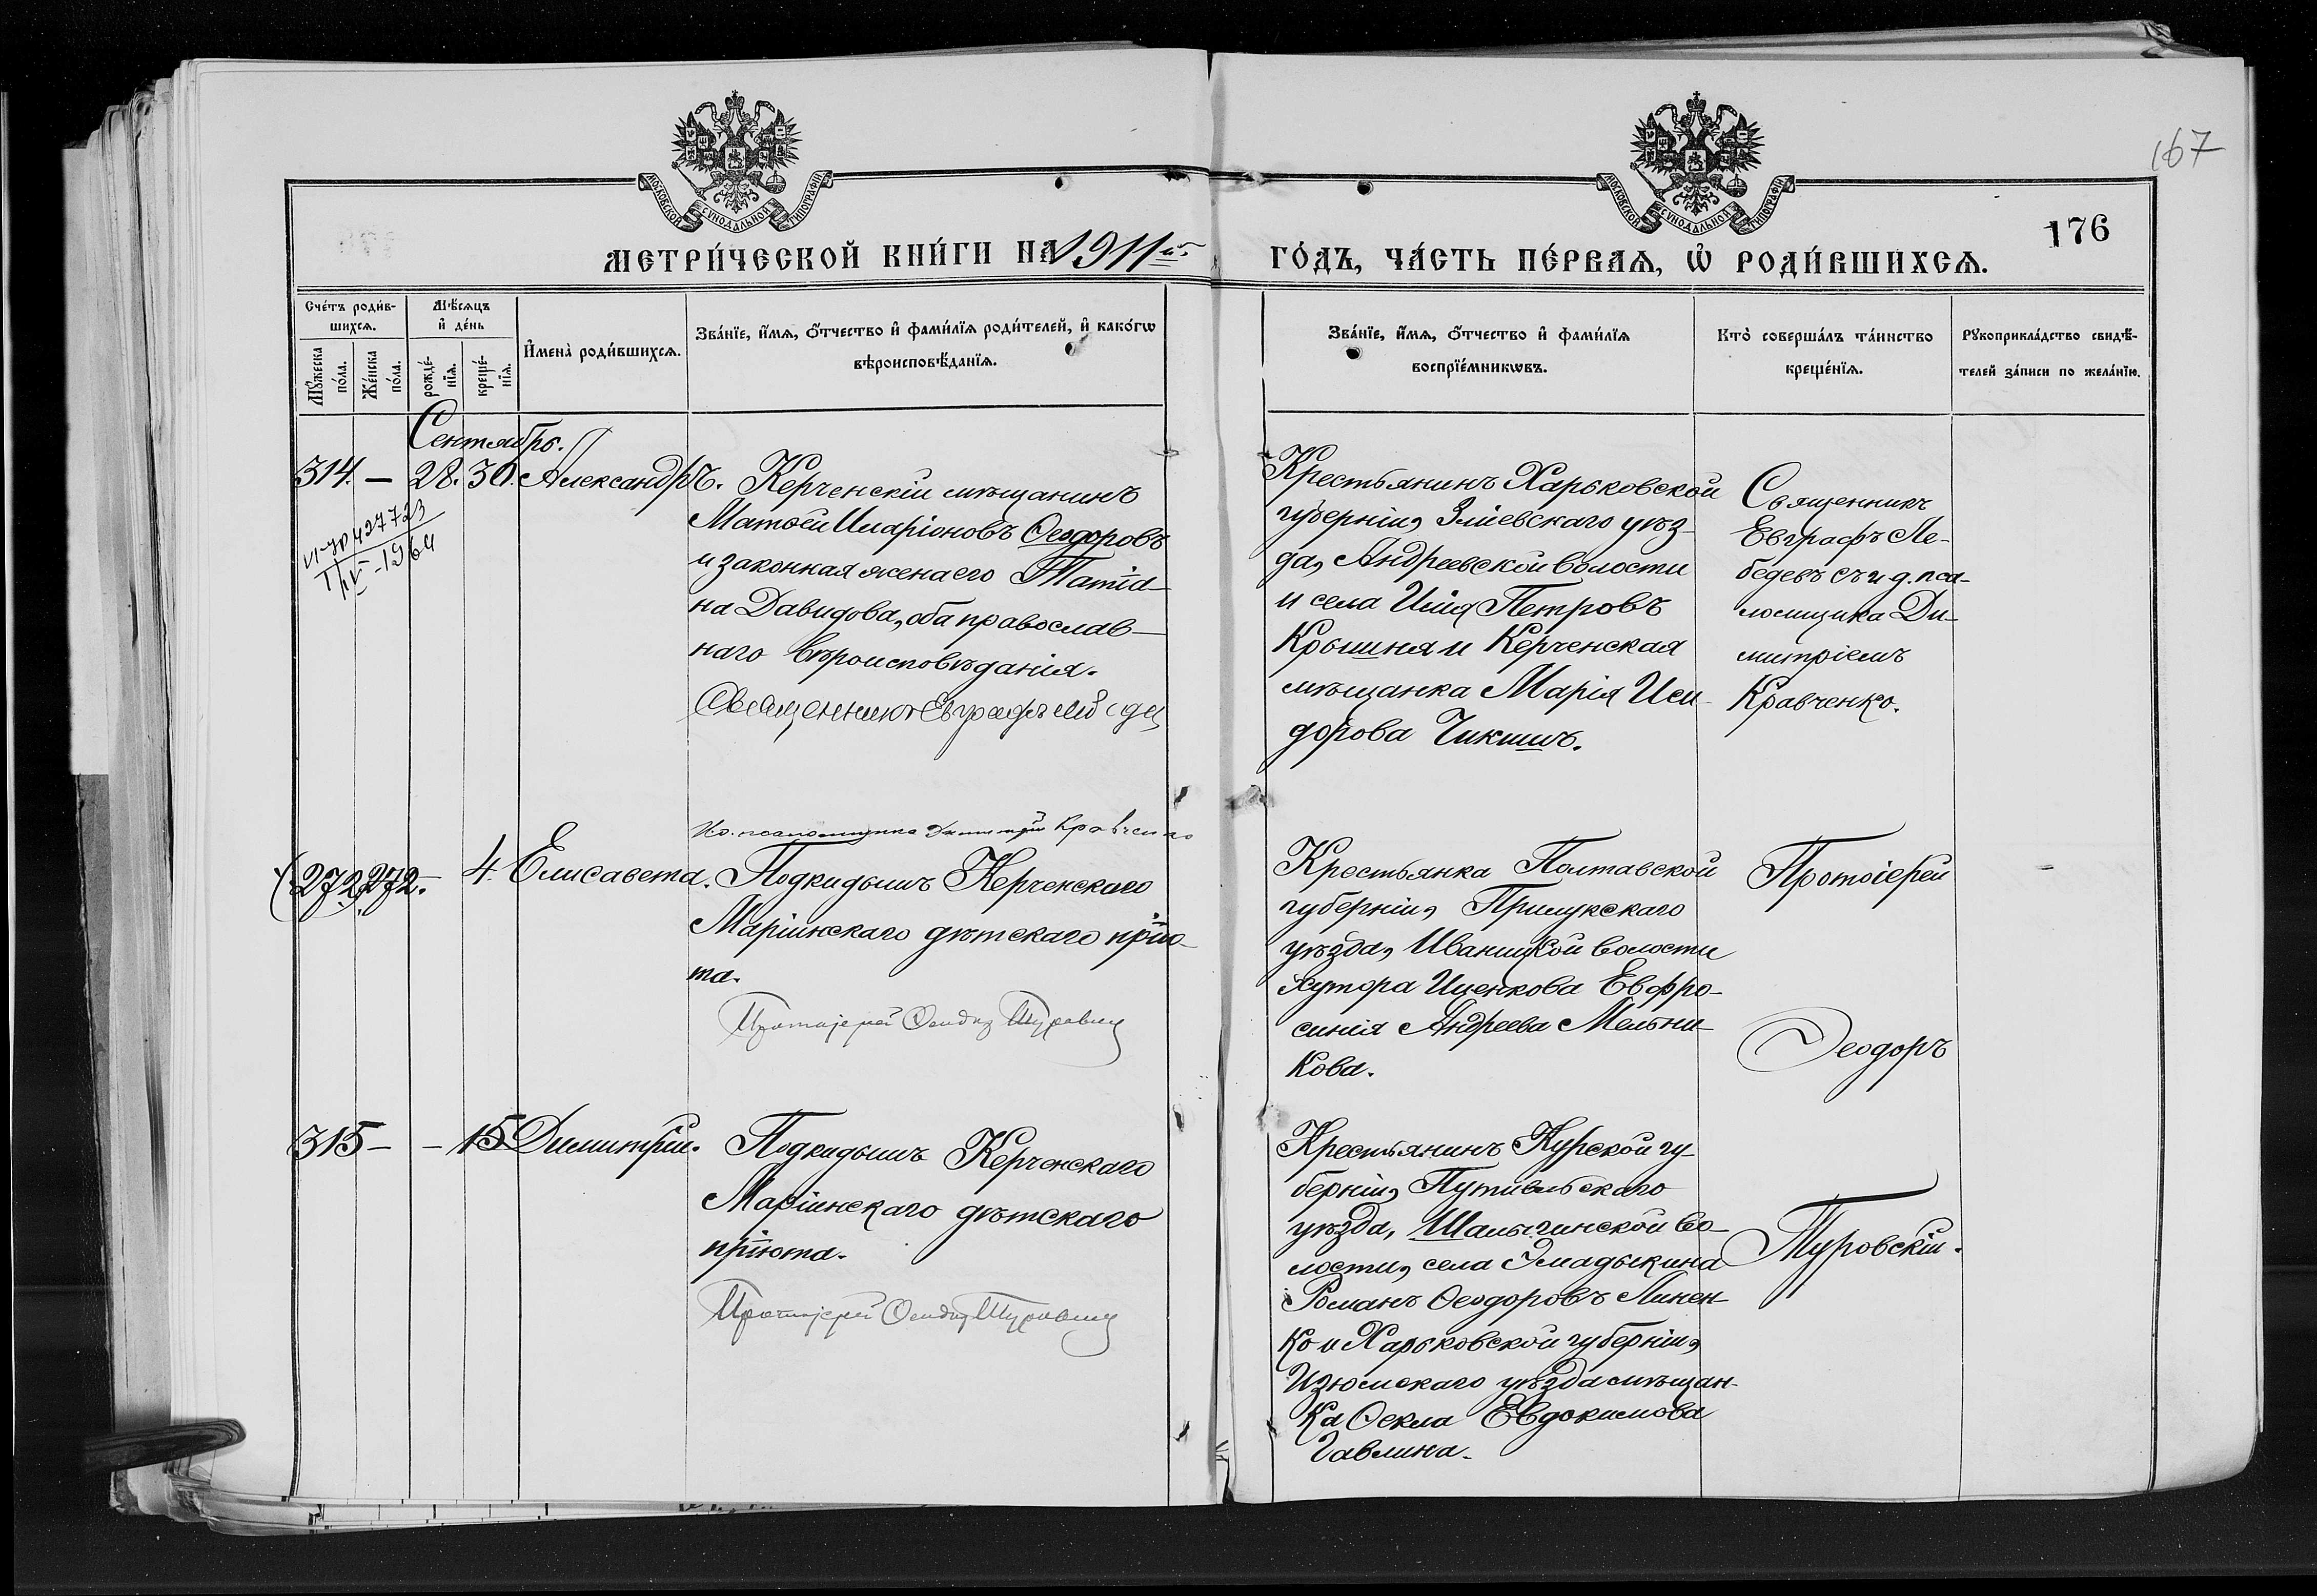 167
176
МОСКОВСКОЙ СѴНОДАЛЬНОЙ ТИПОГРАФІИ
МОСКОВСКОЙ СѴНОДАЛЬНОЙ ТИПОГРАФІИ
МЕТРИ́ЧЕСКОЙ КНИ́ГИ НА 1911й.
ГО́ДЪ, ЧА́СТЬ ПЕ́РВАѦ, Ѡ҆ РОДИ́ВШИХСѦ.
Сче́тъ роди́в-
шихсѧ.
Мꙋ́жеска по́ла.
Же́нска по́ла.
Мѣ́сѧцъ
и҆ де́нь
рожде́-
нїѧ.
креще́-
нїѧ.
И҆мена̀ роди́вшихсѧ.
Зва́нїе, и҆́мѧ, ѻ҆́тчество и҆ фами́лїѧ роди́телей, и҆ како́гѡ
вѣроисповѣ́данїѧ.
Зва́нїе, и҆́мѧ, ѻ҆́тчество и҆ фами́лїѧ
воспрїе́мникѡвъ.
Кто̀ соверша́лъ та́инство
креще́нїѧ.
Рꙋкоприкла́дство свидѣ́-
телей за́писи по жела́нїю.
Сентябрь.
314. — 28. 30. Александръ.
1964
Керченскій мѣщанинъ
Матѳей Иларіоновъ Ѳеодоровъ
и законная жена его Татіа-
на Давидова, оба православ-
наго вѣроисповѣданія.
Священникъ Евграфъ
Ио. псаломщика Димитрій Кравченко
Крестьянинъ Харьковской
губерніи, Зміевскаго уѣз-
да, Андреевской волости
и села Илія Петровъ
Крышня и Керченская
мѣщанка Марія Иси-
дорова Чикишъ.
Священникъ
Евграфъ Ле-
бедевъ съ и. д. пса-
ломщика Ди-
митріемъ
Кравченко.
272. 272. — 4. Елисавета.
Подкидышъ Керченскаго
Маріинскаго дѣтскаго прію-
та.
Протоіерей Ѳеодоръ Туровскій
Крестьянка Полтавской
губерніи, Прилукскаго
уѣзда, Иваницкой волости
хутора Ищенкова Евфро-
синія Андреева Мельни-
кова.
Протоіерей
Ѳеодоръ
Туровскій.
315 — — 15 Димитрій.
Подкидышъ Керченскаго
Маріинскаго дѣтскаго
пріюта.
Протоіерей Ѳеодоръ Туровскій
Крестьянинъ Курской гу-
берніи, Путивльскаго
уѣзда, Шалыгинской во-
лости, села Эмадыкина
Романъ Ѳеодоровъ Линен-
ко и Харьковской губерніи,
Изюмскаго уѣзда мѣщан-
ка Ѳекла Евдокимова
Гавлина.